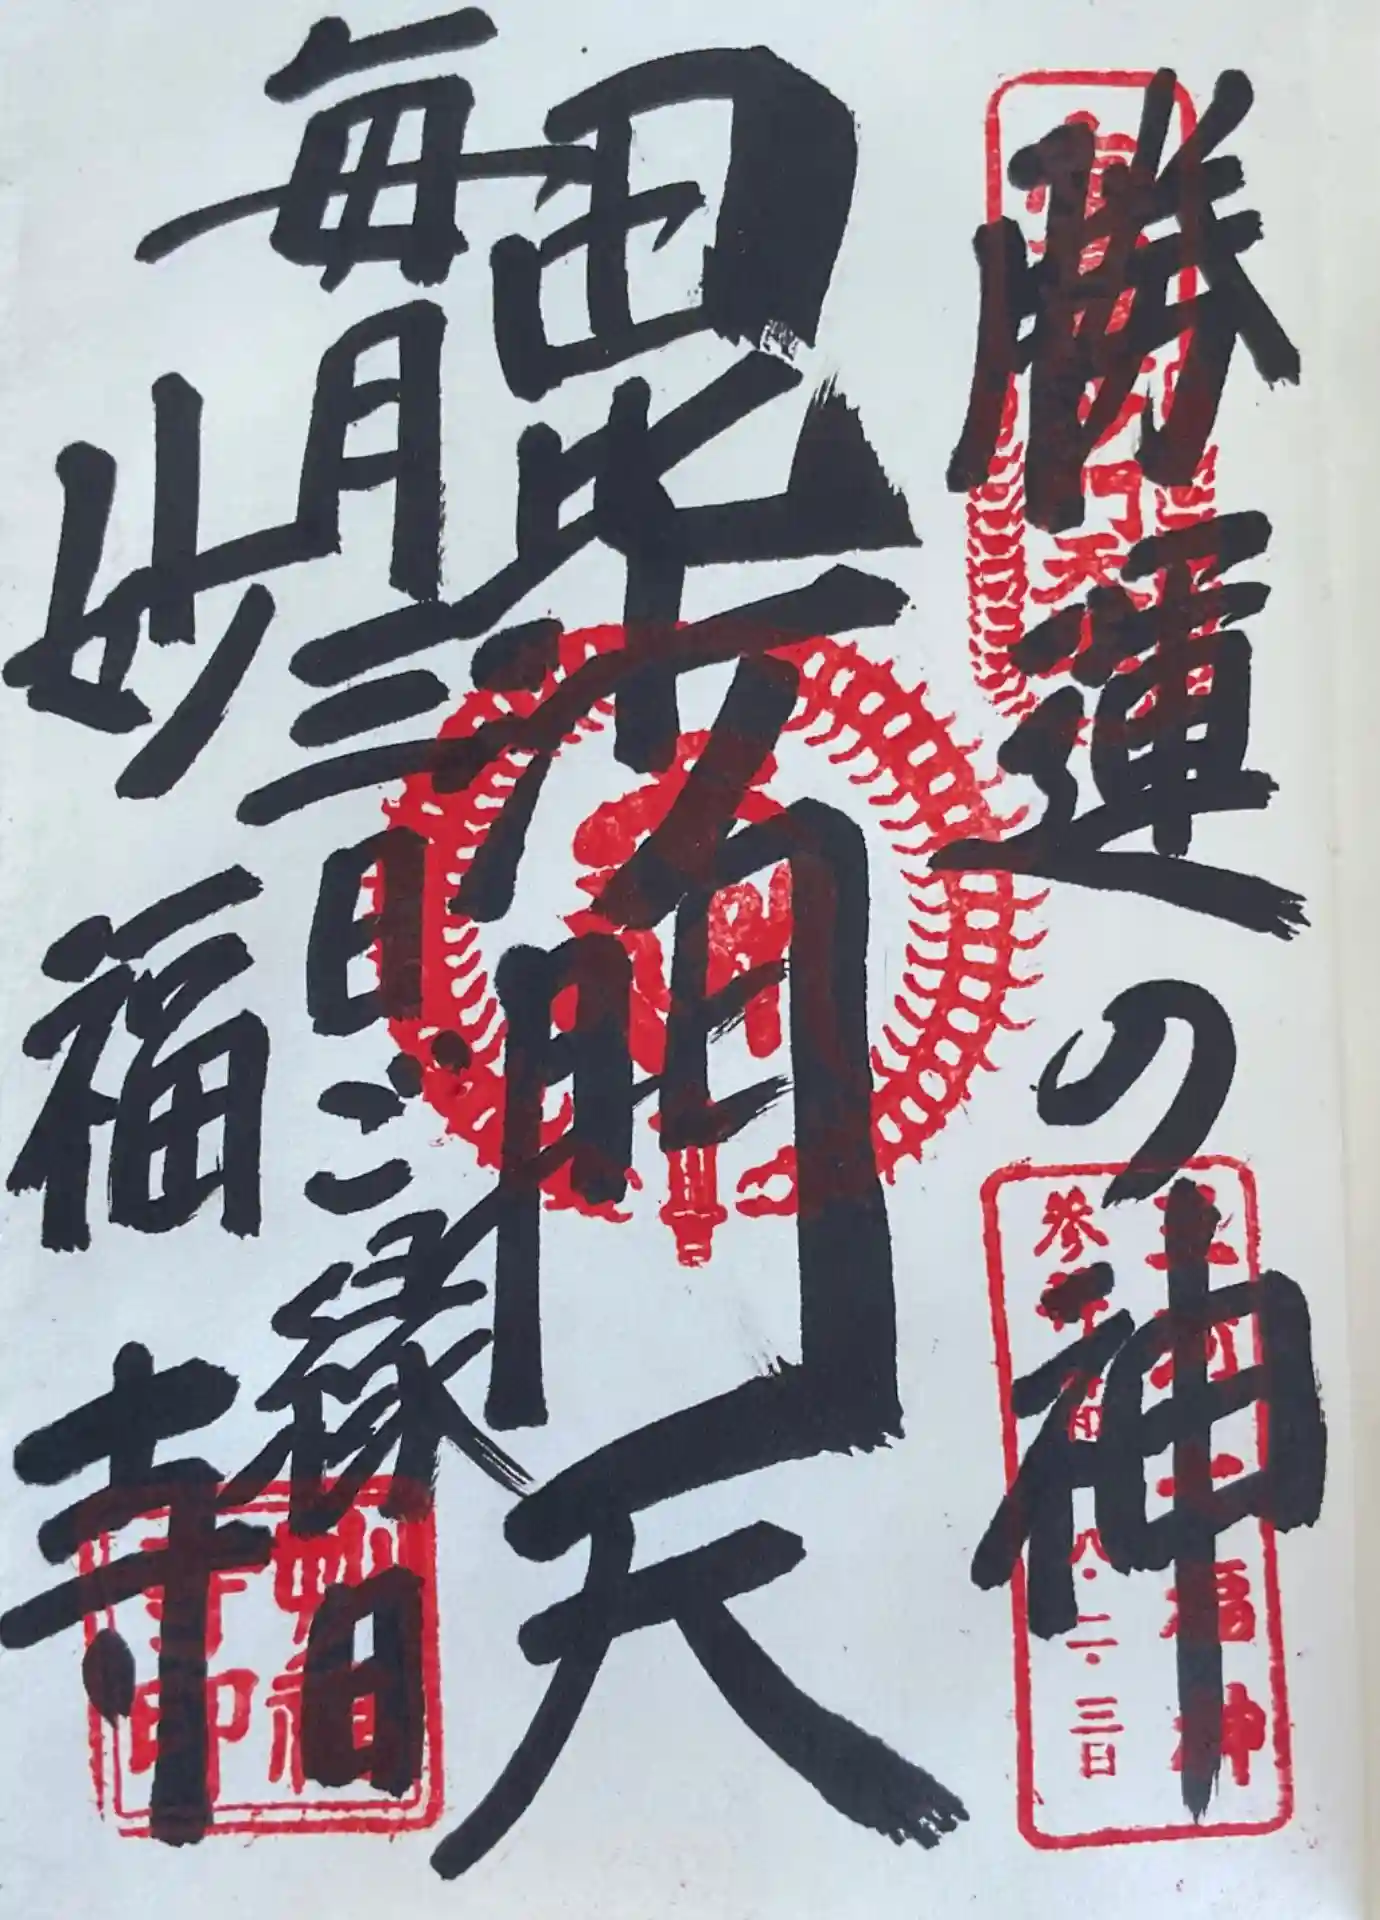 勝運の神
毘沙門天
毎月三日ご縁日
妙福寺
門天
参
福神
八・二・三日
妙福
寺印